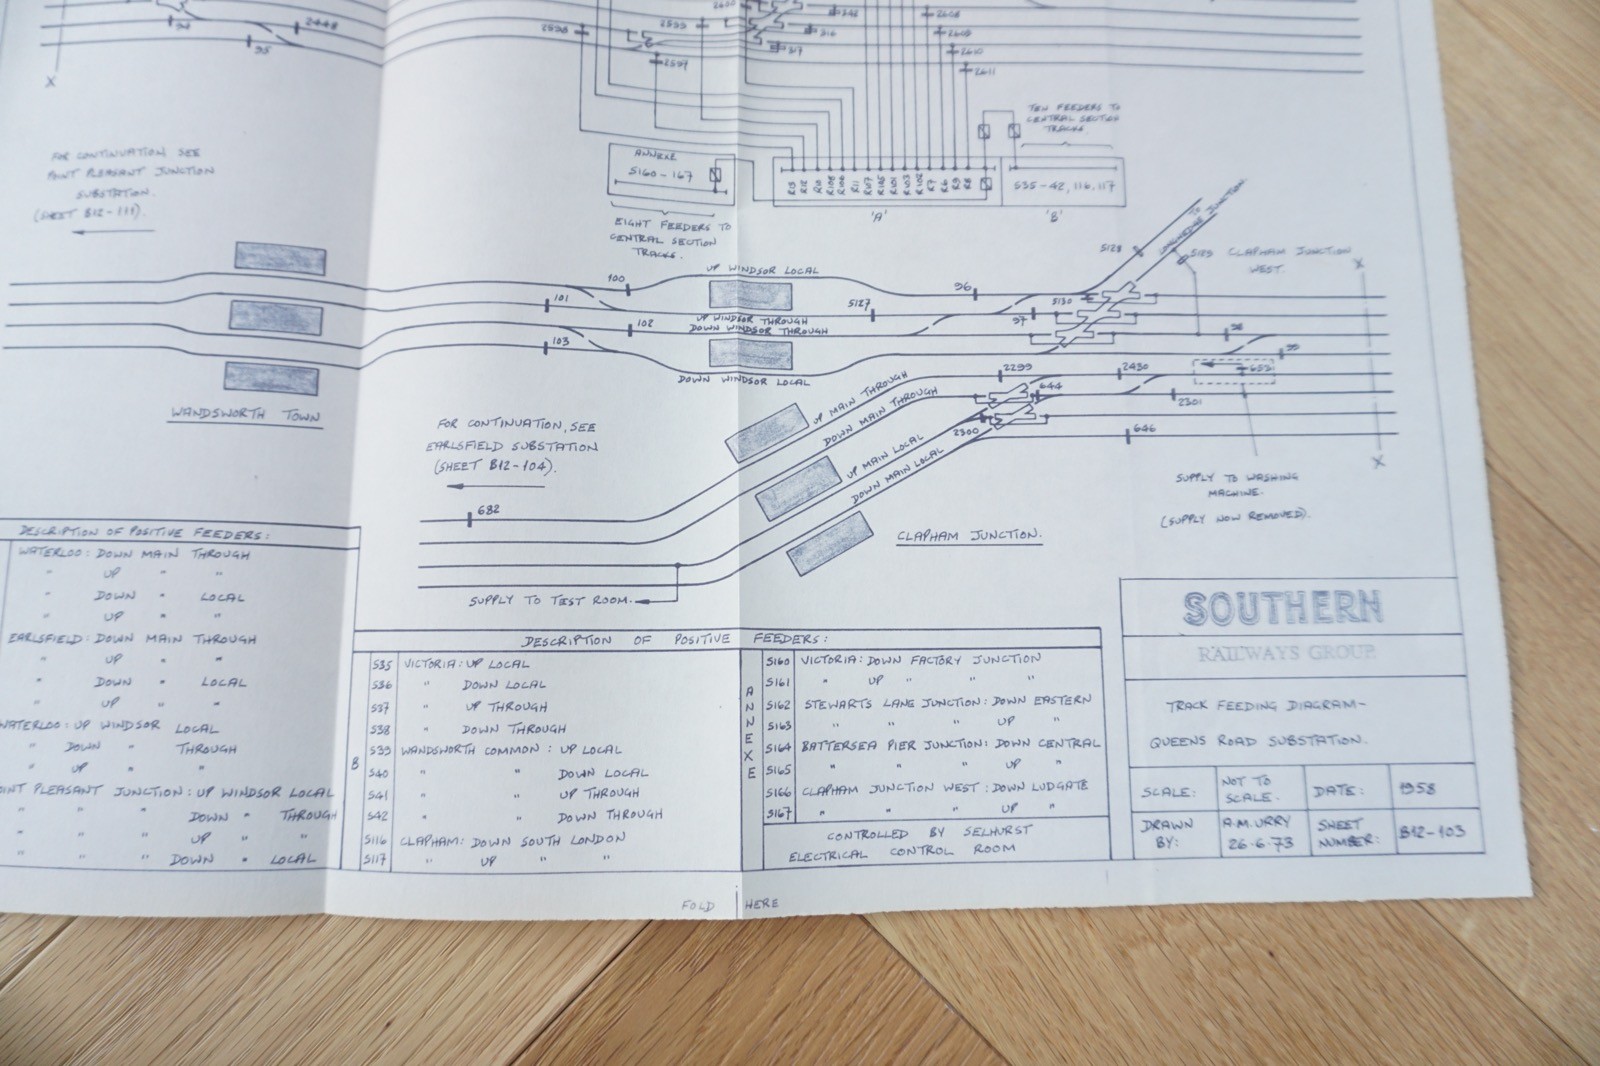 94
95
2448
X
2598
2599
2597
2608
2609
2610
2611
316
317
FOR CONTINUATION SEE
POINT PLEASANT JUNCTION
SUBSTATION.
(SHEET B12-111).
ANNEXE
S160-167
EIGHT FEEDERS TO
CENTRAL SECTION
TRACKS.
TEN FEEDERS TO
CENTRAL SECTION
TRACKS
R13
R12
R11
R107
R101
R103
R102
R7
R6
R9
R8
S35-42, 116, 117
'A'
'B'
TO
JUNCTION
S128
S129
CLAPHAM JUNCTION
WEST.
X
100
101
102
103
UP WINDSOR LOCAL
UP WINDSOR THROUGH
DOWN WINDSOR THROUGH
DOWN WINDSOR LOCAL
S127
96
S130
97
98
99
WANDSWORTH TOWN
UP MAIN THROUGH
DOWN MAIN THROUGH
UP MAIN LOCAL
DOWN MAIN LOCAL
2299
2430
644
2300
2301
646
652
X
FOR CONTINUATION, SEE
EARLSFIELD SUBSTATION
(SHEET B12-104).
682
CLAPHAM JUNCTION.
SUPPLY TO WASHING
MACHINE.
(SUPPLY NOW REMOVED).
SUPPLY TO TEST ROOM.
DESCRIPTION OF POSITIVE FEEDERS:
WATERLOO: DOWN MAIN THROUGH
" UP " "
" DOWN " LOCAL
" UP " "
EARLSFIELD: DOWN MAIN THROUGH
" UP " "
" DOWN " LOCAL
" UP " "
WATERLOO: UP WINDSOR LOCAL
" DOWN " THROUGH
" UP " "
OINT PLEASANT JUNCTION: UP WINDSOR LOCAL
" " " DOWN " THROUGH
" " " UP " "
" " " DOWN " LOCAL
DESCRIPTION OF POSITIVE FEEDERS:
B
S35 VICTORIA: UP LOCAL
S36 " DOWN LOCAL
S37 " UP THROUGH
S38 " DOWN THROUGH
S39 WANDSWORTH COMMON: UP LOCAL
S40 " " DOWN LOCAL
S41 " " UP THROUGH
S42 " " DOWN THROUGH
S116 CLAPHAM: DOWN SOUTH LONDON
S117 " UP " "
ANNEXE
S160 VICTORIA: DOWN FACTORY JUNCTION
S161 " UP " "
S162 STEWARTS LANE JUNCTION: DOWN EASTERN
S163 " " " UP "
S164 BATTERSEA PIER JUNCTION: DOWN CENTRAL
S165 " " " UP "
S166 CLAPHAM JUNCTION WEST: DOWN LUDGATE
S167 " " " UP "
CONTROLLED BY SELHURST
ELECTRICAL CONTROL ROOM
SOUTHERN
RAILWAYS GROUP.
TRACK FEEDING DIAGRAM-
QUEENS ROAD SUBSTATION.
SCALE: NOT TO SCALE. DATE: 1958
DRAWN BY: A.M.URRY 26.6.73 SHEET NUMBER: B12-103
FOLD HERE